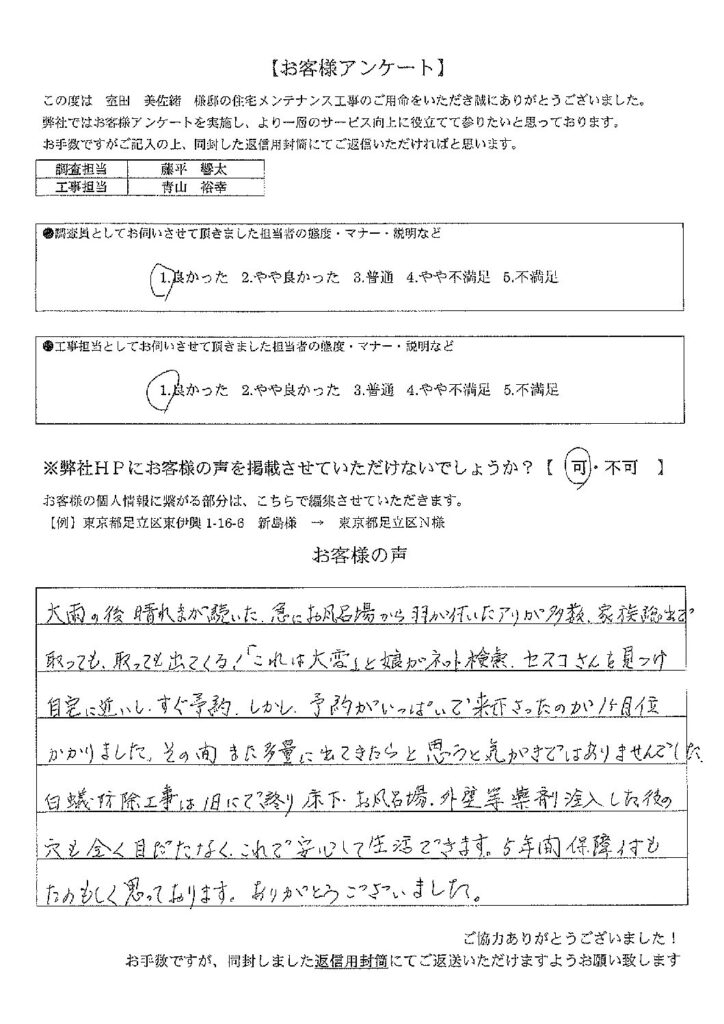 【お客様アンケート】
この度は　室田　美佐緒　様邸の住宅メンテナンス工事のご用命をいただき誠にありがとうございました。
弊社ではお客様アンケートを実施し、より一層のサービス向上に役立てて参りたいと思っております。
お手数ですがご記入の上、同封した返信用封筒にてご返信いただければと思います。
調査担当　藤平　響太
工事担当　青山　裕幸
●調査員としてお伺いさせて頂きました担当者の態度・マナー・説明など
1.良かった　2.やや良かった　3.普通　4.やや不満足　5.不満足
●工事担当としてお伺いさせて頂きました担当者の態度・マナー・説明など
1.良かった　2.やや良かった　3.普通　4.やや不満足　5.不満足
※弊社ＨＰにお客様の声を掲載させていただけないでしょうか？【　可・不可　】
お客様の個人情報に繋がる部分は、こちらで編集させていただきます。
【例】東京都足立区東伊興 1-16-6　新島様　→　東京都足立区Ｎ様
お客様の声
大雨の後 晴れまが続いた、急にお風呂場から羽が付いたアリが多数、家族総出で
取っても、取っても出てくる！「これは大変」と娘がネット検索、セスコさんを見つけ
自宅に近いし、すぐ予約、しかし、予約がいっぱいで来て下さったのが1ヶ月位
かかりました。その間また多量に出てきたらと思うと気がきではありませんでした。
白蟻防除工事は1日にて終り 床下・お風呂場・外壁等薬剤注入した後の
穴も全く目だたなく、これで安心して生活できます。5年間保障付も
たのもしく思っております。ありがとうございました。
ご協力ありがとうございました！
お手数ですが、同封しました返信用封筒にてご返送いただけますようお願い致します